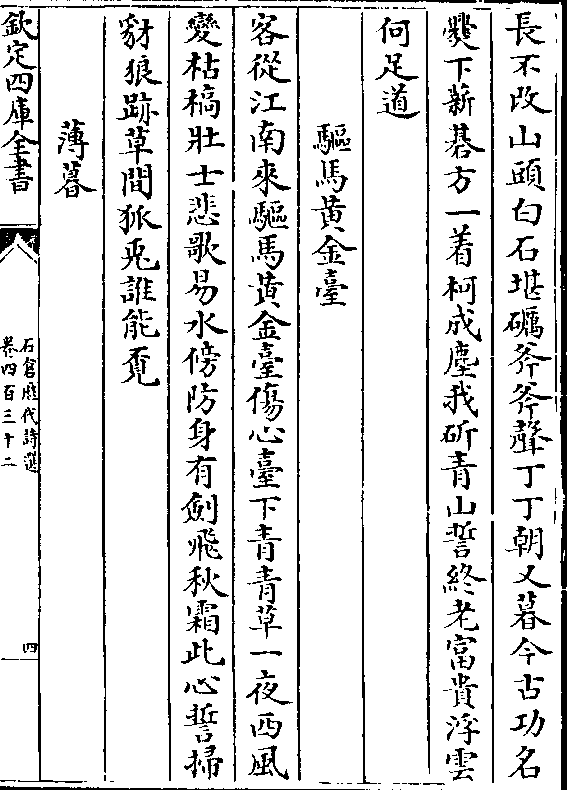 長不改山頭白石堪礪斧斧聲丁丁朝又暮今古功名
爨下薪碁方一着柯成塵我斫青山誓終老富貴浮雲
何足道
驅馬黄金臺
客從江南來驅馬黄金臺傷心臺下青青草一夜西風
變枯槁壯士悲歌易水傍防身有劍飛秋霜此心誓掃
豺狼跡草間狐兎誰能覔
薄暮
欽定四庫全書
石倉歴代詩選
卷四百三十二
四